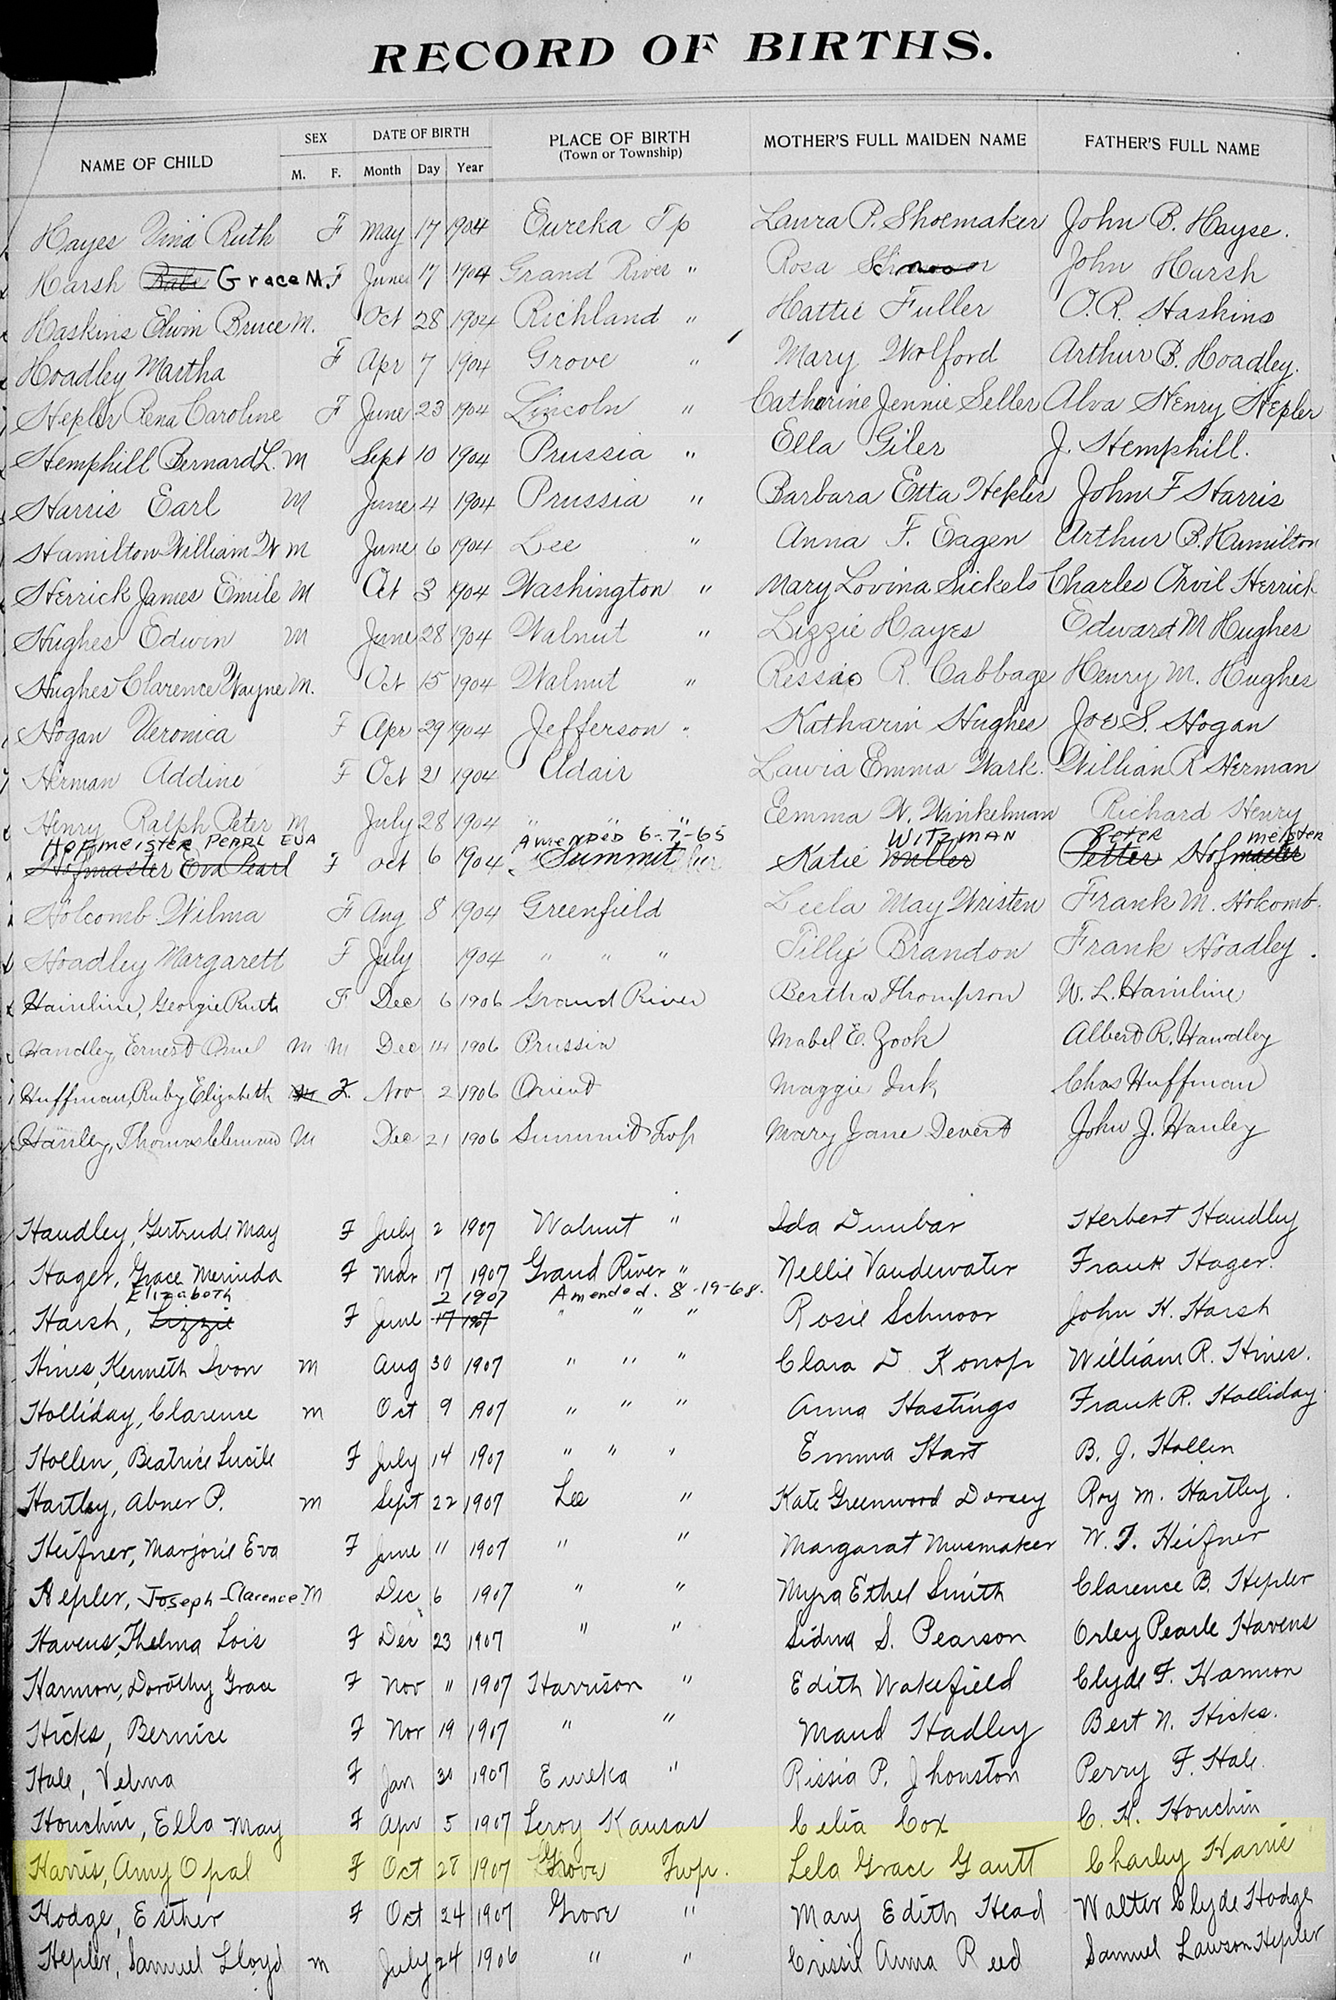 RECORD OF BIRTHS.
NAME OF CHILD SEX M. F. DATE OF BIRTH Month Day Year PLACE OF BIRTH (Town or Township) MOTHER'S FULL MAIDEN NAME FATHER'S FULL NAME
Hayes Vina Ruth F May 17 1904 Eureka Tp Laura P. Shoemaker John B. Hayse.
Harsh Grace M. F June 17 1904 Grand River " Rosa John Harsh
Haskins Elwin Bruce M. Oct 28 1904 Richland " Hattie Fuller O.R. Haskins
Hoadley Martha F Apr 7 1904 Grove " Mary Wolford Arthur B. Hoadley.
Hepler Rena Caroline F June 23 1904 Lincoln " Catherine Jennie Seller Alva Henry Hepler
Hemphill Bernard L. M Sept 10 1904 Prussia " Ella Giler J. Hemphill.
Harris Earl M June 4 1904 Prussia " Barbara Etta Hepler John F Harris
Hamilton William W M June 6 1904 Lee " Anna F. Eagen Arthur B. Hamilton
Herrick James Emile M Oct 3 1904 Washington " Mary Lovina Sickels Charles Orvil Herrick
Hughes Edwin M June 28 1904 Walnut " Lizzie Hayes Edward M Hughes
Hughes Clarence Wayne M. Oct 15 1904 Walnut " R. Cabbage Henry M. Hughes
Hogan Veronica F Apr 29 1904 Jefferson " Katharin Hughes Joe S. Hogan
Herman Addine F Oct 21 1904 Adair Emma Wark. William R Herman
Henry Ralph Peter M July 28 1904 " " Emma W. Winkelman Richard Henry
HOFMEISTER PEARL EVA AMENDED 6-7-65 WITZMAN PETER MEISTER
Hofmaster Eva Pearl F Oct 6 1904 Summit Katie Miller Petter Hofmaster
Holcomb Wilma F Aug 8 1904 Greenfield Leela May Wristen Frank M. Holcomb.
Hoadley Margarett F July 1904 " " " Tillie Brandon Frank Hoadley.
Hainline, Georgie Ruth F Dec 6 1906 Grand River Bertha Thompson W. L. Hainline
Handley Ernest M M Dec 14 1906 Prussia Mabel E. Zook Albert R. Handley
Huffman, Ruby Elizabeth F. Nov 2 1906 Orient Maggie Chas Huffman
Hanley, Thomas M Dec 21 1906 Summit Twp Mary Jane Devert John J. Hanley
Handley, Gertrude May F July 2 1907 Walnut " Ida Dunbar Herbert Handley
Hager, Grace Merinda F Mar 17 1907 Grand River " Nellie Vandewater Frank Hager.
Elizabeth 2 1907 Amended. 8-19-68.
Harsh, Lizzie F June 17 1907 " " " Rosie Schnoor John H. Harsh
Hines, Kenneth Ivon M Aug 30 1907 " " " Clara D. Konop William R. Hines.
Holliday, Clarence M Oct 9 1907 " " " Anna Hastings Frank R. Holliday
Hollen, Beatrice Lucile F July 14 1907 " " " Emma Hart B. J. Hollen
Hartley, Abner P. M Sept 22 1907 Lee " Kate Greenwood Dorsey Roy M. Hartley.
Heifner, Marjorie Eva F June 11 1907 " " Margarat Musmaker W. F. Heifner
Hepler, Joseph Clarence M Dec 6 1907 " " Myra Ethel Smith Clarence B. Hepler
Havens, Thelma Lois F Dec 23 1907 " " Sidna S. Pearson Orley Pearle Havens
Hannon, Dorothy Grace F Nov 11 1907 Harrison " Edith Wakefield Clyde F. Hannon
Hicks, Bernice F Nov 19 1907 " " Maud Hadley Bert N. Hicks.
Hale, Velma F Jan 31 1907 Eureka " Rissia P. Jhouston Perry F. Hale.
Houchin, Ella May F Apr 5 1907 Leroy Kansas Celia Cox C. H. Houchin
Harris, Amy Opal F Oct 27 1907 Grove Twp. Lela Grace Gantt Charley Harris
Hodge, Esther F Oct 24 1907 Grove " Mary Edith Head Walter Clyde Hodge
Hepler, Samuel Lloyd M July 24 1906 " " Crissie Anna Reed Samuel Lawson Hepler